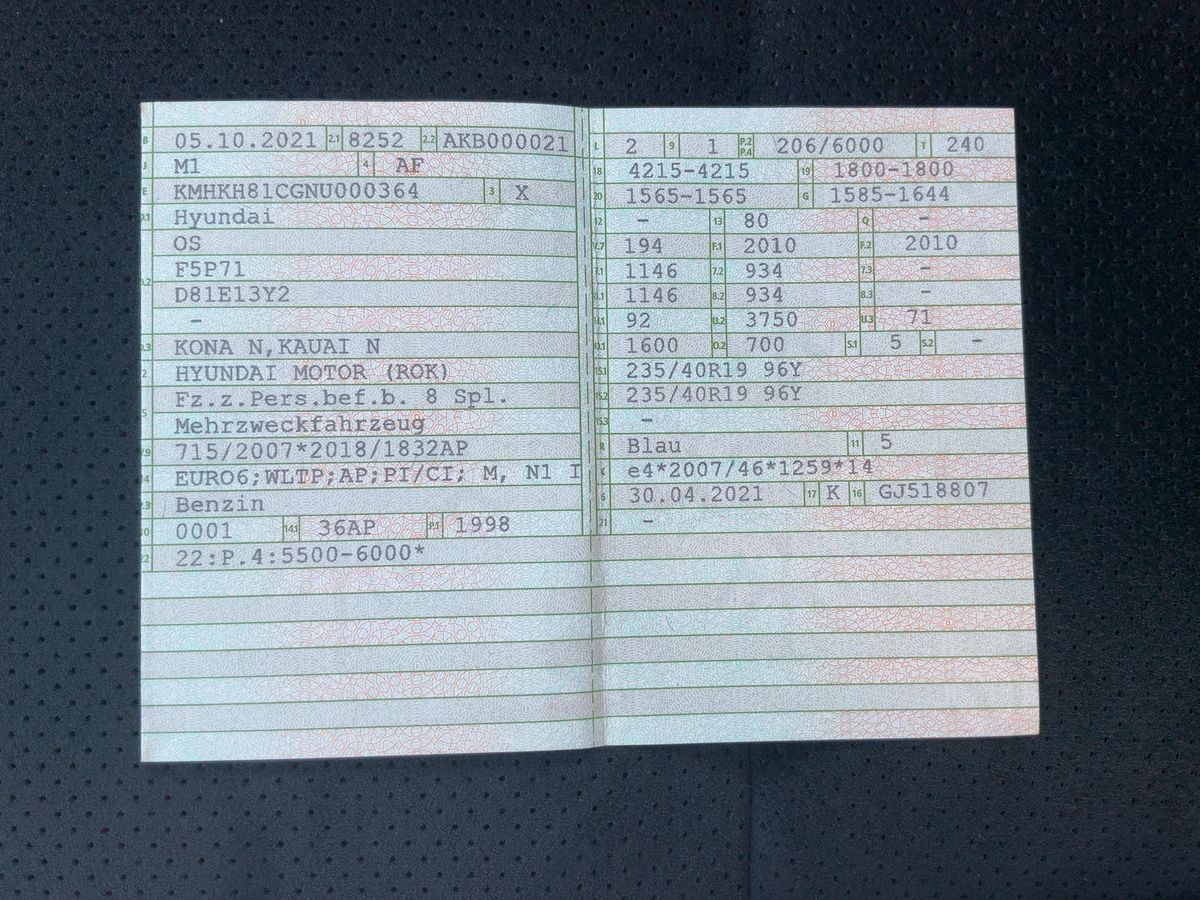 B 05.10.2021 2.1 8252 2.2 AKB000021
J M1 4 AF
E KMHKH81CGNU000364 3 X
D.1 Hyundai
OS
F5P71
D.2 D81E13Y2
–
D.3 KONA N,KAUAI N
2 HYUNDAI MOTOR (ROK)
Fz.z.Pers.bef.b. 8 Spl.
5 Mehrzweckfahrzeug
V.9 715/2007*2018/1832AP
14 EURO6;WLTP;AP;PI/CI; M, N1 I
P.3 Benzin
10 0001 14.1 36AP P.1 1998
22 22:P.4:5500-6000*
L 2 9 1 P.2 P.4 206/6000 T 240
18 4215-4215 19 1800-1800
20 1565-1565 G 1585-1644
12 – 13 80 Q –
V.7 194 F.1 2010 F.2 2010
7.1 1146 7.2 934 7.3 –
8.1 1146 8.2 934 8.3 –
U.1 92 U.2 3750 U.3 71
O.1 1600 O.2 700 S.1 5 S.2 –
15.1 235/40R19 96Y
15.2 235/40R19 96Y
15.3 –
R Blau 11 5
K e4*2007/46*1259*14
6 30.04.2021 17 K 16 GJ518807
21 –